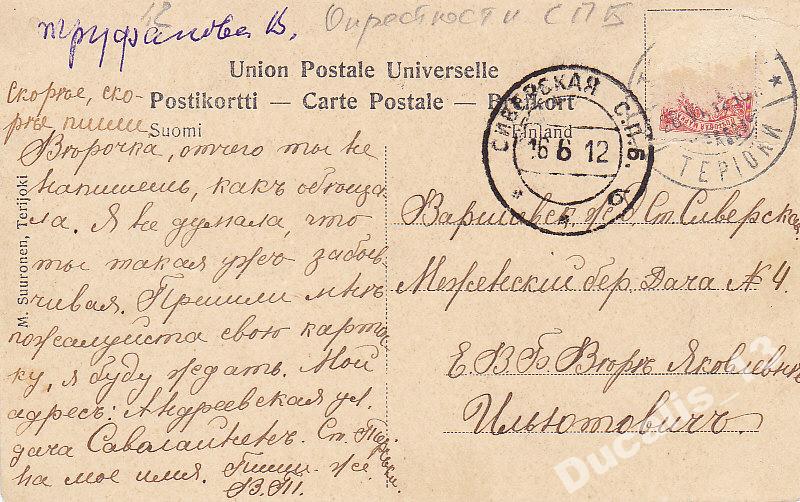 12 Окрестности СПБ
Труфанова В.
Union Postale Universelle
Postikortti — Carte Postale — Brefkort
Suomi Finland
Скорѣе, ско-
рѣе пиши
Вѣрочка, отчего ты не
напишешь, какъ обѣща
ла. Я не думала, что
ты такая ужъ забыв
чивая. Пришли мнѣ
пожалуйста свою карточ
ку, я буду ждать. Мой
адресъ: Андреевская ул.
дача Саволайненъ. Ст. Терiоки.
на мое имя. Пиши же.
В.Т.
СИВЕРСКАЯ С.П.Б.
16 6 12
б
ТЕРIОКИ
Варшавск. ж.д. Ст. Сиверская
Меженскiй бер. Дача № 4.
Е В Б Вѣрѣ Яковлевнѣ
Ильютовичъ.
M. Suuronen, Terijoki
Ducalis_13